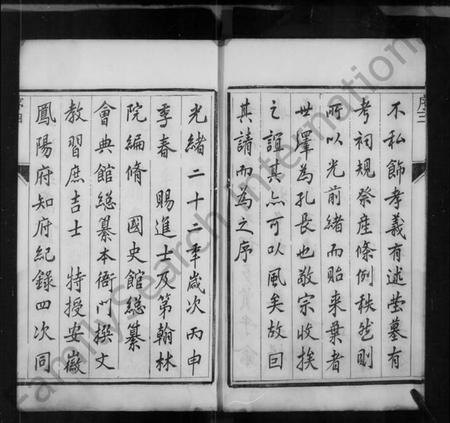 不私飾孝義有述塋墓有
考祠規祭產條例秩然則
所以光前緒而貽來葉者
世澤為孔長也敬宗收族
之誼其亦可以風矣故曰
其請而為之序
序三
光緒二十二年歲次丙申
季春 賜進士及第翰林
院編脩 國史館總纂
會典館總纂本衙門撰文
教習庶吉士 特授安徽
鳳陽府知府紀錄四次同
序四
FamilySearch International